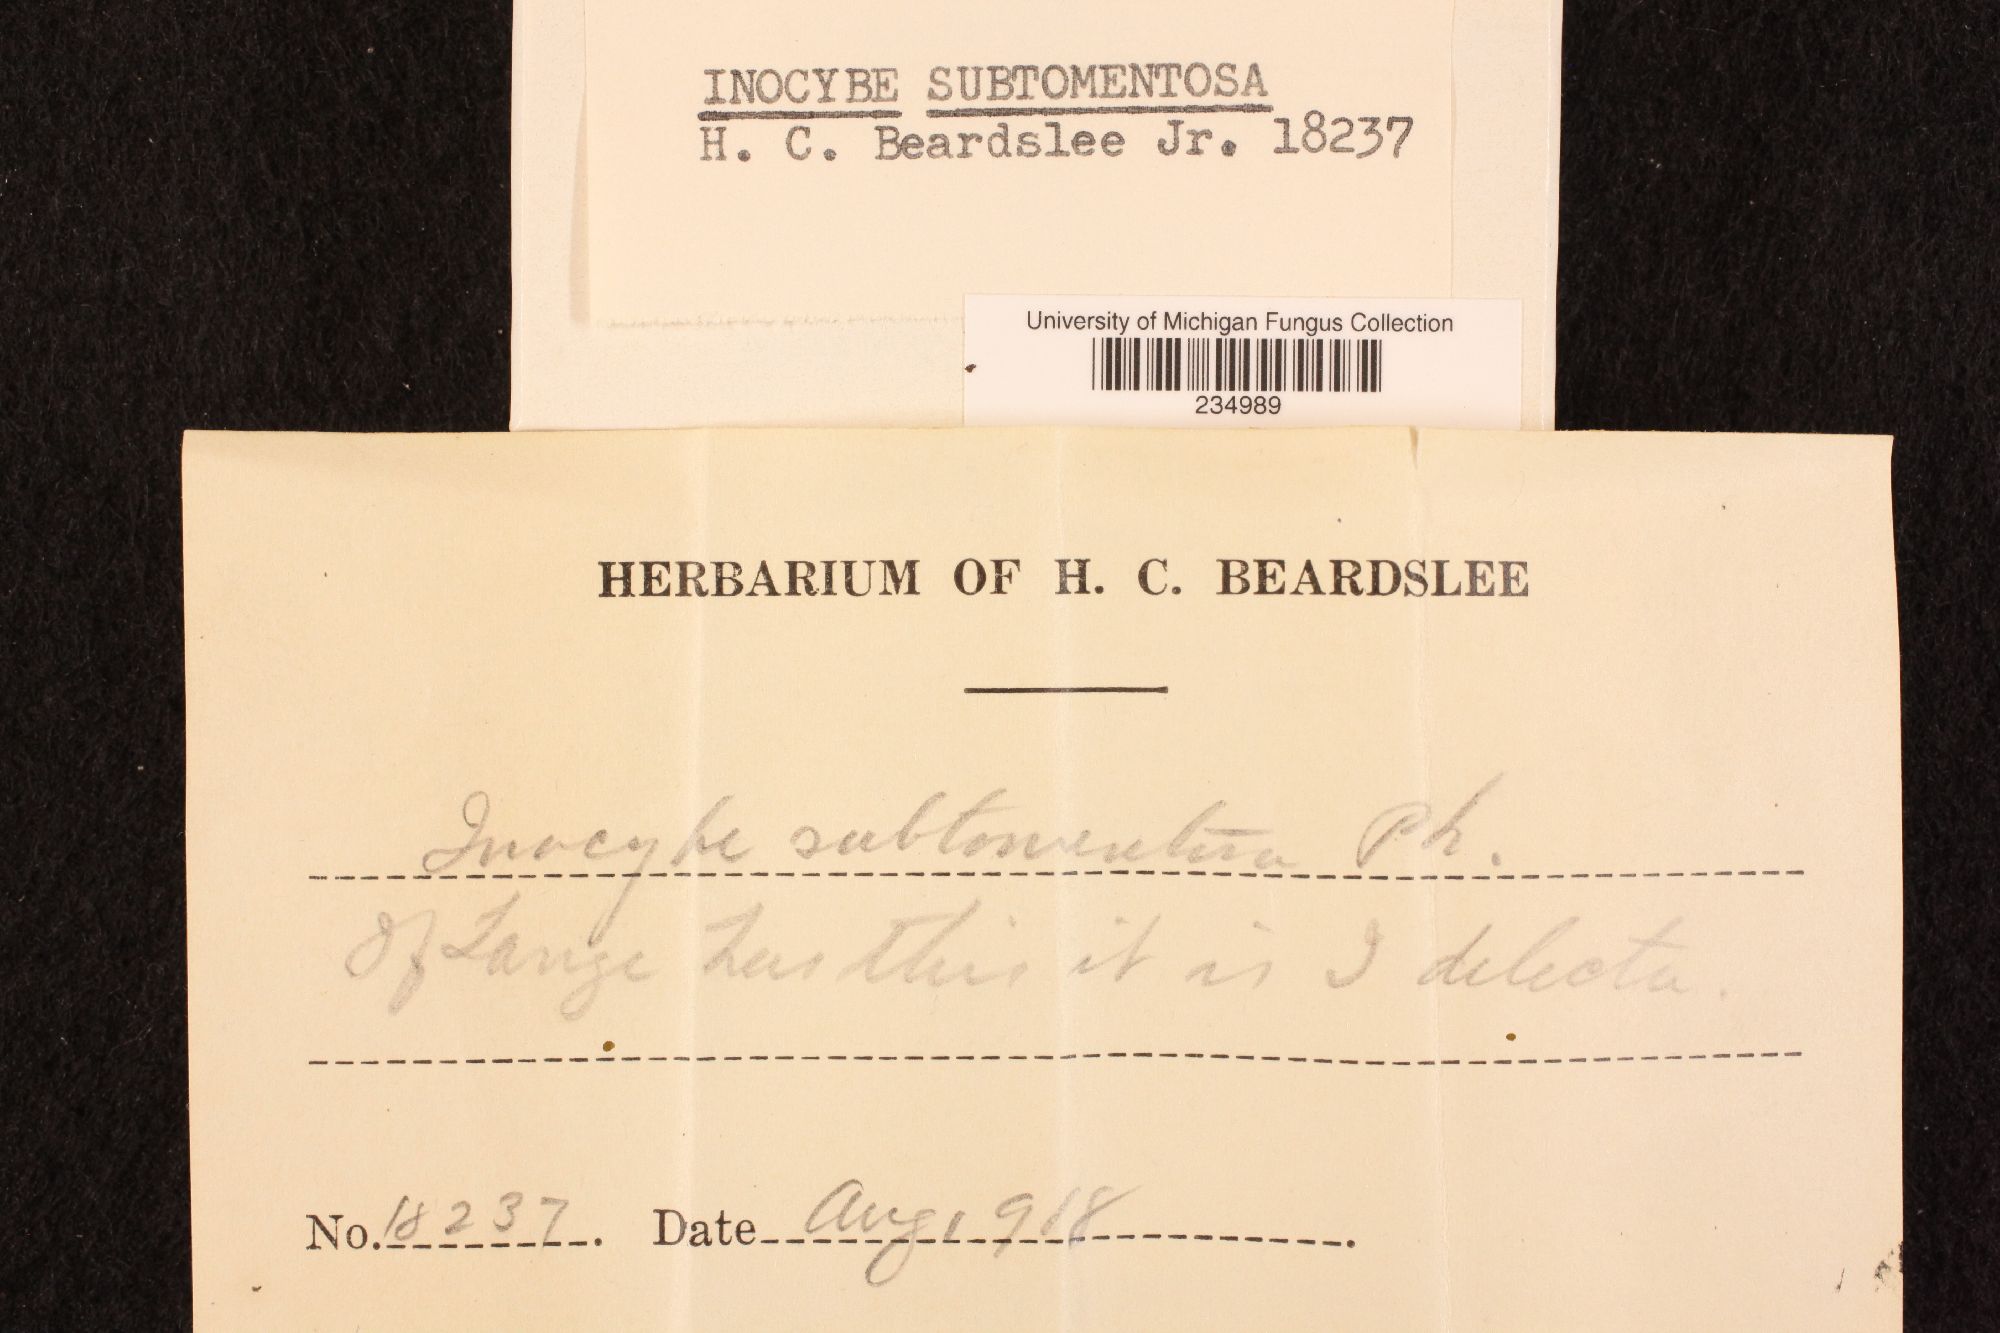 INOCYBE SUBTOMENTOSA
H. C. Beardslee Jr. 18237
University of Michigan Fungus Collection
234989
HERBARIUM OF H. C. BEARDSLEE
Inocybe subtomentosa Pk.
If Lange has this it is I delecta.
No. 18237. Date Aug 1918.